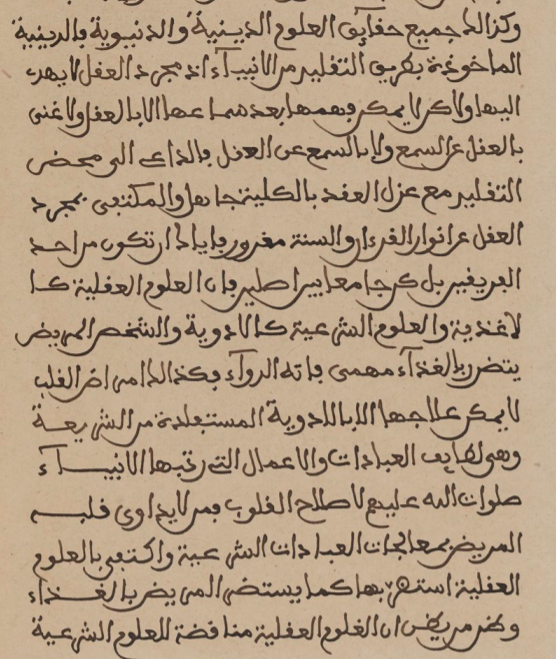 وكذالك جميع حقايق العلوم الدينية والدنيوية فالدينية
الماخوذة بطريق التقليد من الانبياء اذ مجرد العقل لا يهدى
اليها ولاكن لا يمكن فهمها بعد سماعها الا بالعقل ولا غنى
بالعقل عن السمع ولا بالسمع عن العقل فالداعى الى محض
التقليد مع عزل العقل بالكلية جاهل والمكتفى بمجرد
العقل عن انوار القرءان والسنة مغرور فاياك ان تكون من احد
الفريقين بل كن جامعا بين اصلين فان العلوم العقلية كا
لاغذية والعلوم الشرعية كالادوية والشخص المريض
يتضرر بالغذاء مهمى فاته الدواء فكذالك امراض القلب
لا يمكن علاجها الا بالادوية المستفادة من الشريعة
وهى لطايف العبادات والاعمال التى رتبها الانبياء
صلوات الله عليهم لاصلاح القلوب فمن لا يداوى قلبه
المريض بمعالجات العبادات الشرعية واكتفى بالعلوم
العقلية استضر بها كما يستضر المريض بالغذاء
وظن من يظن ان العلوم العقلية مناقضة للعلوم الشرعية